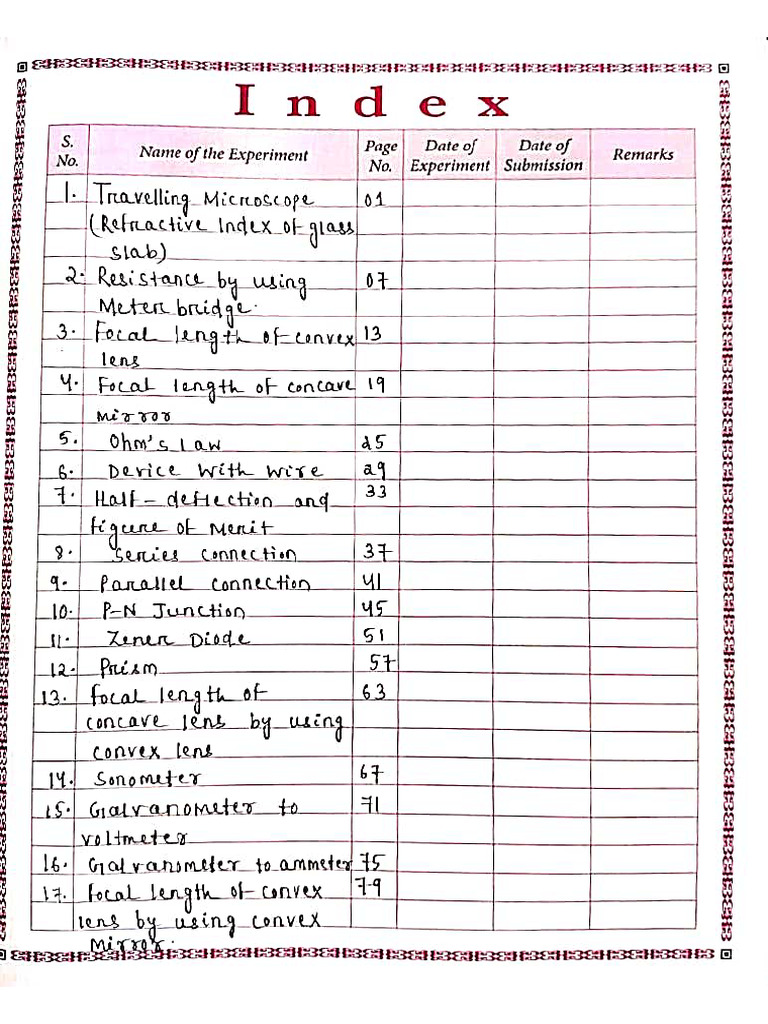 Index
S. No. Name of the Experiment Page No. Date of Experiment Date of Submission Remarks
1. Travelling Microscope 01
(Refractive Index of glass
slab)
2. Resistance by using 07
Meter bridge.
3. Focal length of convex 13
lens
4. Focal length of concave 19
mirror
5. Ohm's Law 25
6. Device With Wire 29
7. Half-deflection and 33
figure of Merit
8. Series connection 37
9. Parallel connection 41
10. P-N Junction 45
11. Zener Diode 51
12. Prism 57
13. Focal length of 63
concave lens by using
convex lens
14. Sonometer 67
15. Galvanometer to 71
voltmeter
16. Galvanometer to ammeter 75
17. Focal length of convex 79
lens by using convex
Mirror.